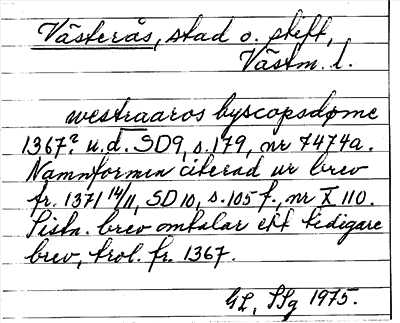 Västerås, stad o. stift,
Västm. l.
westraaros byscopsdøme
1367? u.d. SD9, s.179, nr 7474a.
Namnformen citerad ur brev
fr. 1371 14/11, SD10, s.105 f., nr X 110.
Sistn. brev omtalar ett tidigare
brev, trol. fr. 1367.
GL, SSg 1975.